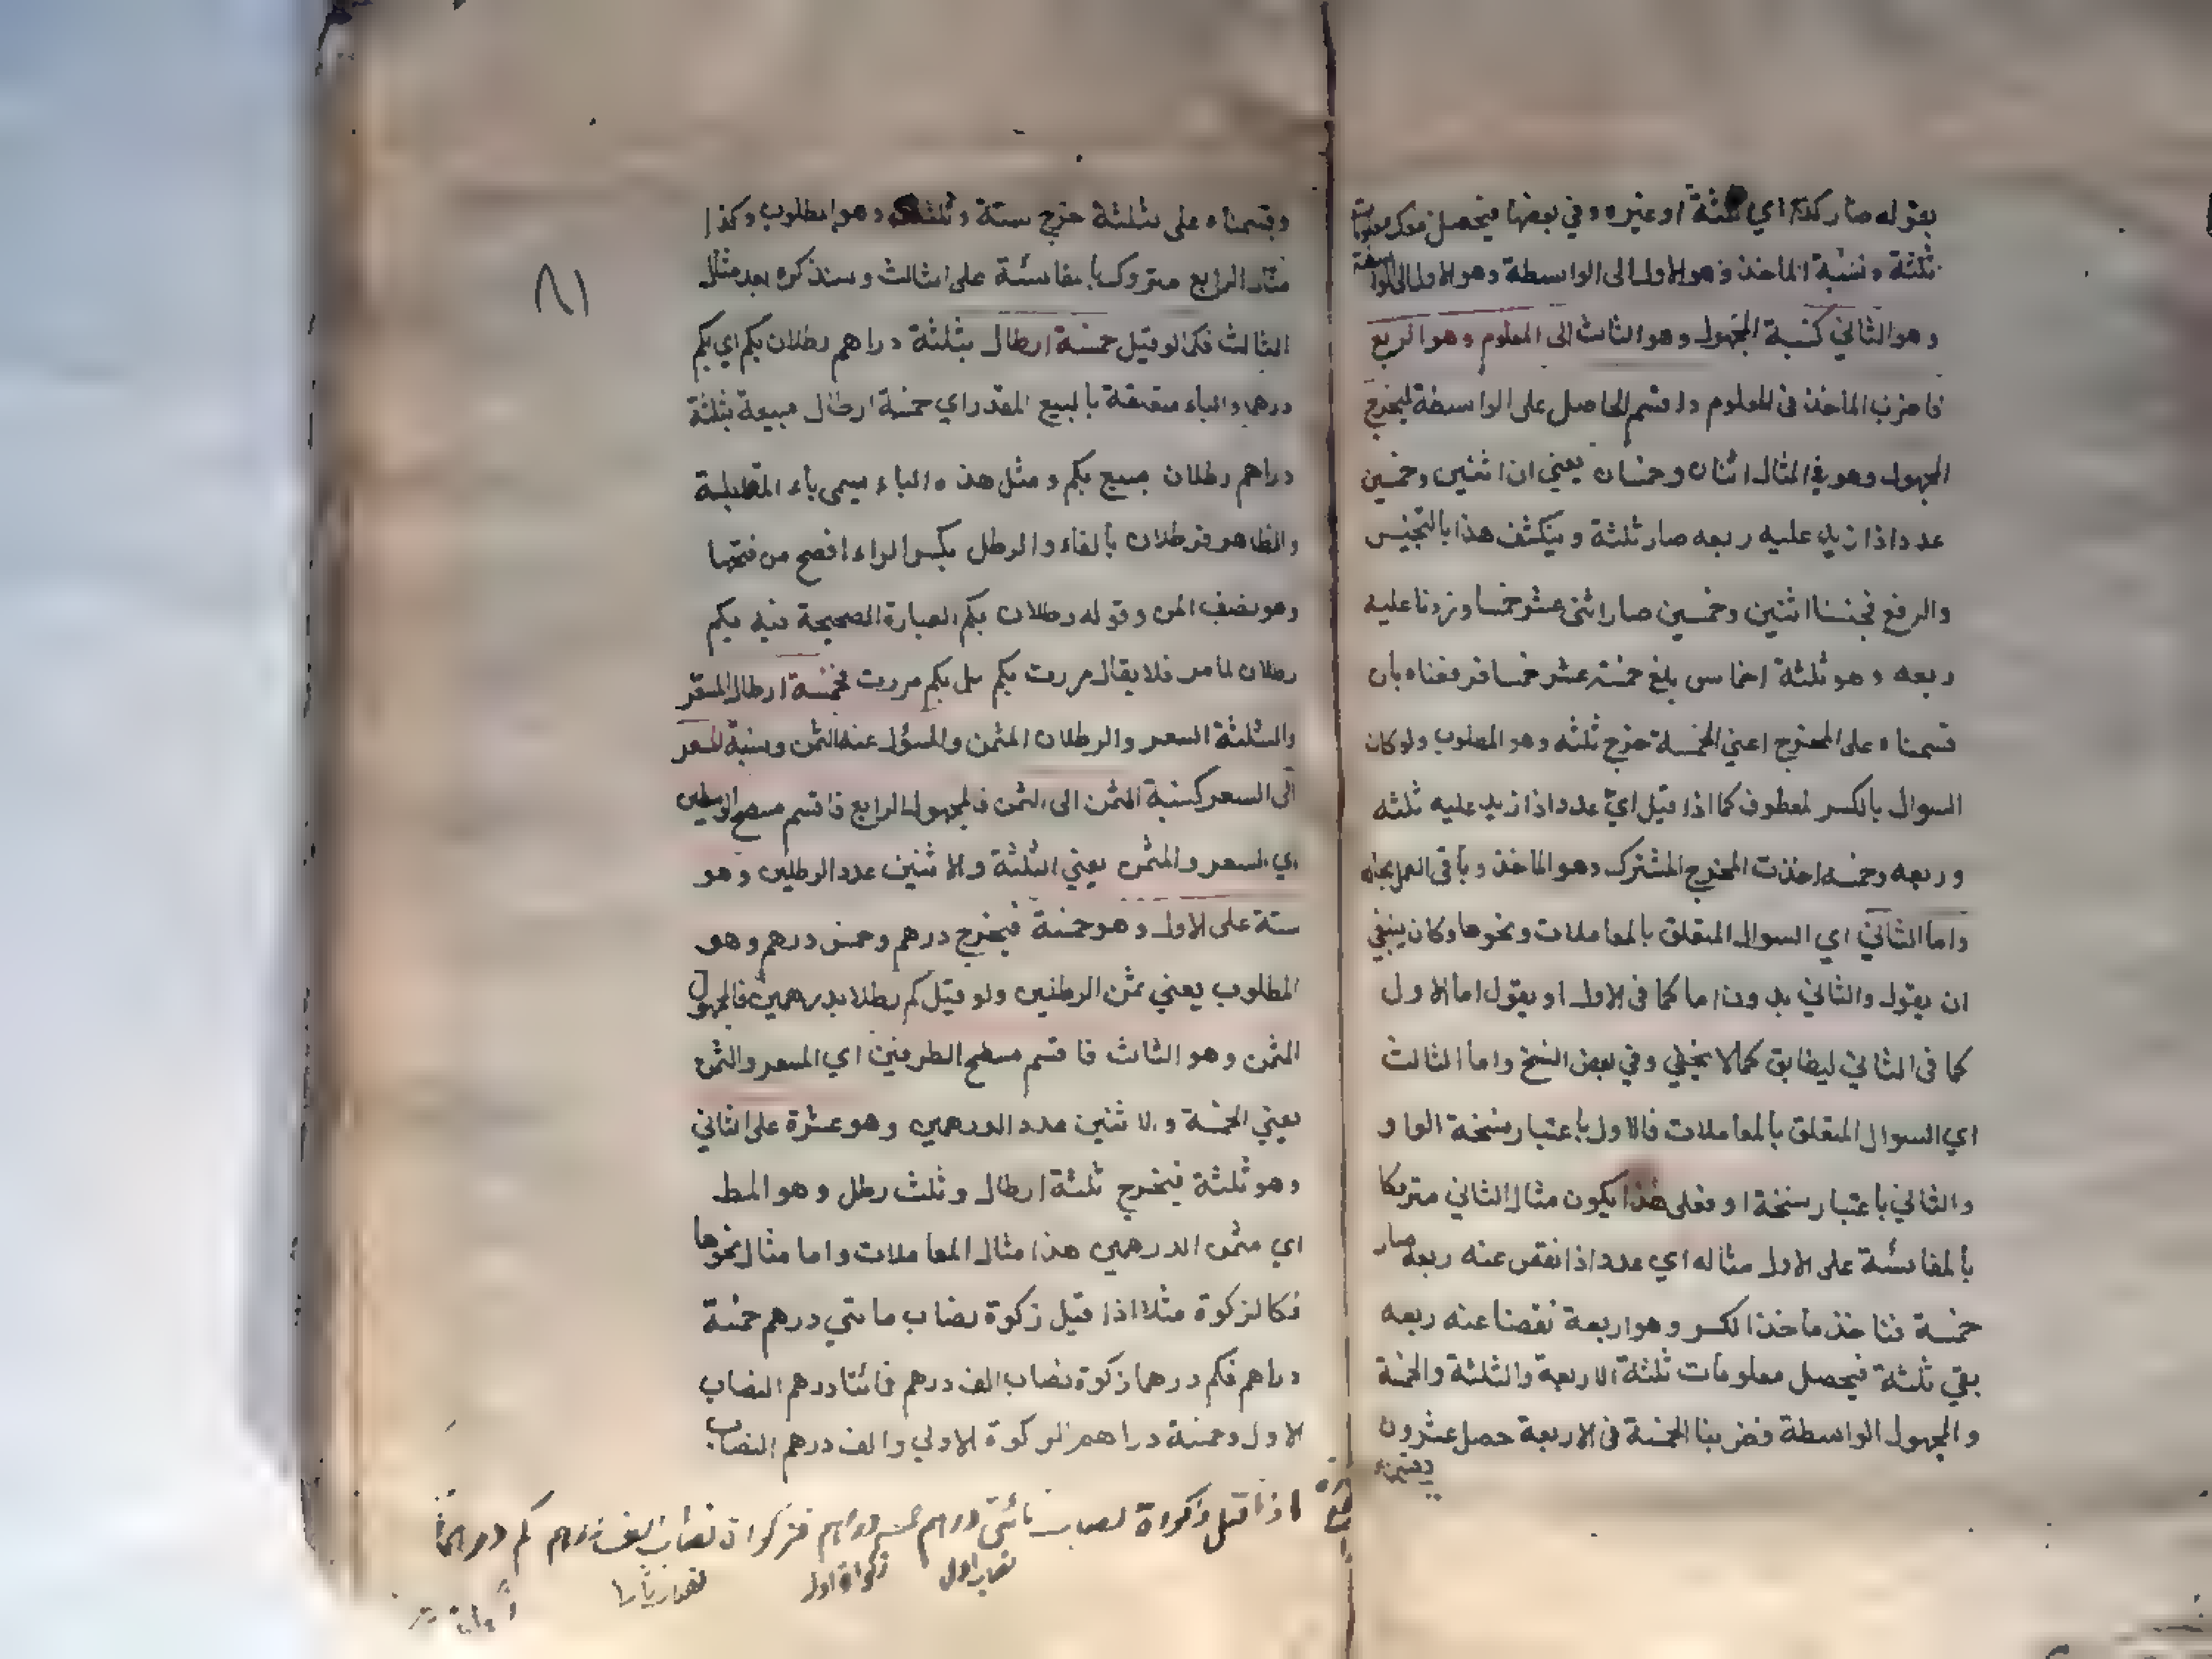 بقوله صار كذا اي ثلثة او غيره وفي بعضها فيحصل معك معلومات
ثلثة ونسبة المأخذ وهو الاول الى الواسطة وهو الاول الى الواسطة
وهو الثاني كنسبة المجهول وهو الثالث الى المعلوم وهو الرابع
فاضرب المأخذ في المعلوم واقسم الحاصل على الواسطة ليخرج
المجهول وهو في المثال اثنان وخمسان يعني ان اثنين وخمسين
عدد اذا زيد عليه ربعه صار ثلثة وينكشف هذا بالتجنيس
والرفع فجنسنا اثنين وخمسين صار اثنى عشر خمسا وزدنا عليه
ربعه وهو ثلثة اخماس بلغ خمسة عشر خمسا فرفعناه بان
قسمناه على المخرج اعني الخمسة خرج ثلثه وهو المطلوب ولو كان
السوال بالكسر لمعطوف كما اذا قيل اي عدد اذا زيد عليه ثلثه
وربعه وخمسه اخذت المخرج المشترك وهو المأخذ وباقى العمل بحاله
واما الثاني اي السوال المتعلق بالمعاملات ونحوها وكان ينبغي
ان يقول والثاني بدون اما كما فى الاول او يقول اما الاول
كما فى الثاني ليطابق كما لا يخفي وفي بعض النسخ واما الثالث
اي السوال المتعلق بالمعاملات فالاول باعتبار نسخة الواو
والثاني باعتبار نسخة او فعلى هذا يكون مثال الثاني متركا
بالمقائسة على الاول مثاله اي عدد اذا نقص عنه ربعه صار
خمسة فناخذ مأخذ الكسر وهو اربعة نقصنا عنه ربعه
بقي ثلثة فيحصل معلومات ثلثة الاربعة والثلثة والخمسة
والمجهول الواسطة فضربنا الخمسة فى الاربعة حصل عشرون
وقسمناه على ثلثة خرج ستة وثلثان وهو المطلوب وكذا
مثال الرابع متروك بالمقائسة على الثالث وسنذكره بعد مثال
الثالث فكما لو قيل خمسة ارطال بثلثة دراهم رطلان بكم اي بكم
درهم والباء متعلقة بالبيع المقدر اي خمسة ارطال مبيعة بثلثة
دراهم رطلان مبيع بكم ومثل هذه الباء يسمى باء المقابلة
والظاهر فرطلان بالفاء والرطل بكسر الراء افصح من فتحها
وهو نصف المن وقوله رطلان بكم العبارة الصحيحة فيه بكم
رطلان لما مر فلا يقال مررت بكم بل بكم مررت فخمسة ارطال المسعر
والثلثة السعر والرطلان المثمن والمسؤل عنه الثمن ونسبة المسعر
الى السعر كنسبة المثمن الى الثمن فالمجهول الرابع فاقسم مسطح الوسطين
اي السعر والمثمن يعني الثلثة والاثنين عدد الرطلين وهو
ستة على الاول وهو خمسة فيخرج درهم وخمس درهم وهو
المطلوب يعني ثمن الرطلين ولو قيل كم رطلا بدرهمين فالمجهول
المثمن وهو الثالث فاقسم مسطح الطرفين اي المسعر والثمن
يعني الخمسة والاثنين عدد الدرهمين وهو عشرة على الثاني
وهو ثلثة فيخرج ثلثة ارطال وثلث رطل وهو المط
اي مثمن الدرهمين هذا مثال المعاملات واما مثال نحوها
فكالزكوة مثلا اذا قيل زكوة نصاب مائتي درهم خمسة
دراهم فكم درهما زكوة نصاب الف درهم فمائتا درهم النصاب
الاول وخمسة دراهم الزكوة الاولي والف درهم النصاب
اذا قيل زكواة نصاب مائتى درهم خمسة دراهم فزكواة نصاب الف دراهم كم درهما
نصاب اول زكواة اول نصاب ثانيا
٨١